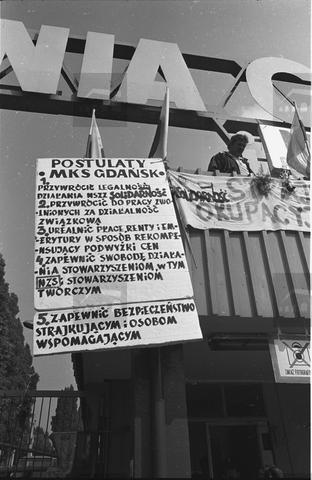 NIA
POSTULATY
• MKS GDAŃSK •
1.
PRZYWRÓCIĆ LEGALNOŚĆ
DZIAŁANIA NSZZ SOLIDARNOŚĆ
2. PRZYWRÓCIĆ DO PRACY ZWO-
LNIONYCH ZA DZIAŁALNOŚĆ
ZWIĄZKOWĄ
3. UREALNIĆ PŁACE, RENTY I EM-
ERYTURY W SPOSÓB REKOMPE-
NSUJĄCY PODWYŻKI CEN
4. ZAPEWNIĆ SWOBODĘ DZIAŁA-
NIA STOWARZYSZENIOM, W TYM
NZS I STOWARZYSZENIOM
TWÓRCZYM
5. ZAPEWNIĆ BEZPIECZEŃSTWO
STRAJKUJĄCYM I OSOBOM
WSPOMAGAJĄCYM
SOLIDARNOŚĆ
OKUPACY